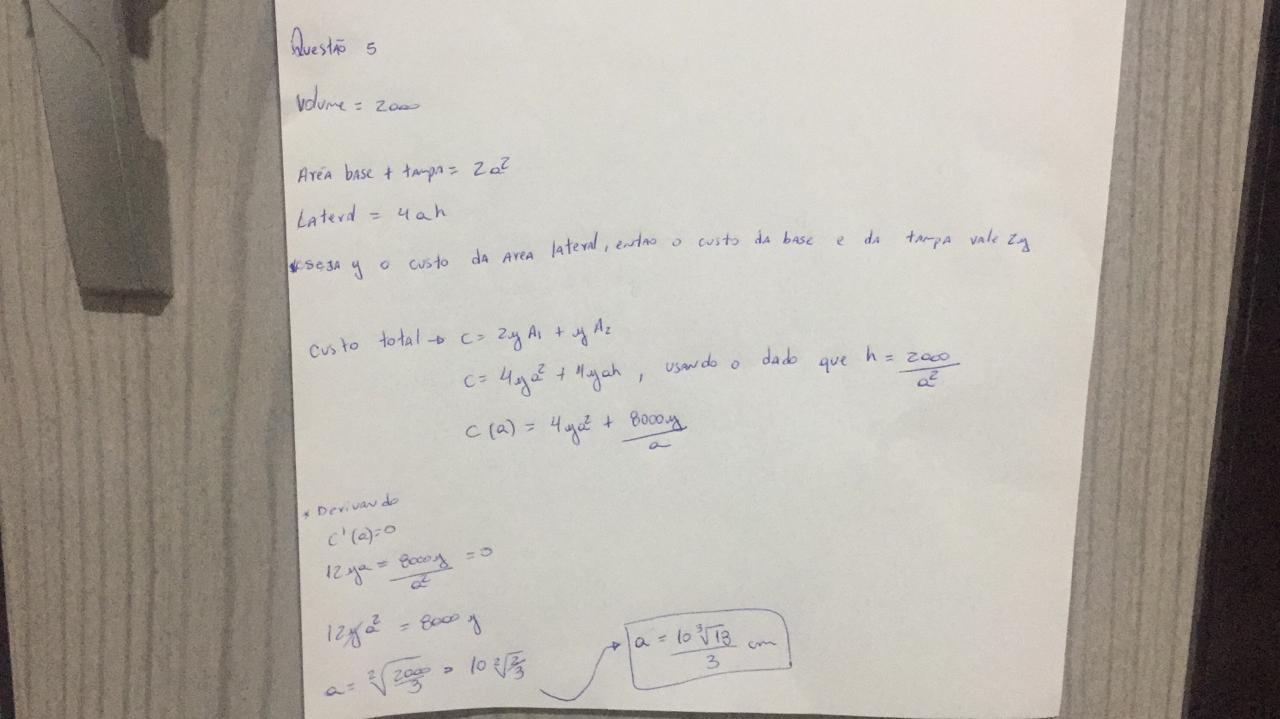 Questão 5
Volume = 2000
Area base + tampa = 2a²
Lateral = 4ah
*Seja y o custo da area lateral, entao o custo da base e da tampa vale 2y
Custo total → C = 2y A₁ + y A₂
C = 4ya² + 4yah, usando o dado que h = 2000/a²
C(a) = 4ya² + 8000y/a
* Derivando
C'(a)=0
12ya = 8000y/a² = 0
12ya² = 8000y
a = ²√(2000/3) = 10 ²√(2/3) → a = 10∛18/3 cm